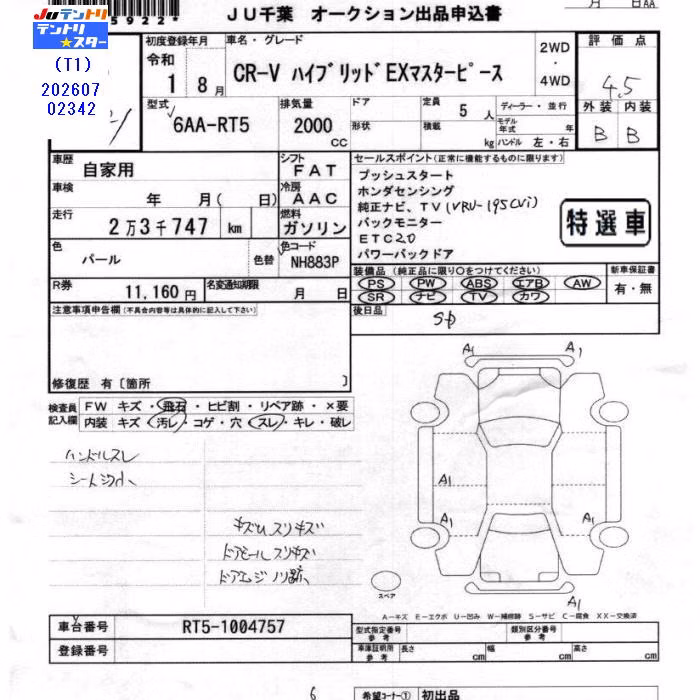 5922
JU千葉 オークション出品申込書
月 日AA
Juテントリ
テントリ★スター
(T1)
202607
02342
初度登録年月
車名・グレード
評価点
令和
1 8月
CR-V ハイブリッドEXマスターピース
2WD
・
4WD
4.5
外装 内装
B B
型式
排気量
ドア
定員
ディーラー・並行
6AA-RT5
2000
CC
形状
積載
5人
kg
モデル年式 年
ハンドル 左・右
車歴
自家用
シフト
FAT
セールスポイント(正常に機能するものに限ります)
車検
年 月( 日)
冷房
AAC
プッシュスタート
ホンダセンシング
純正ナビ、TV(VRU-195CVi)
バックモニター
ETC2.0
パワーバックドア
特選車
走行
2万3千747 km
燃料
ガソリン
色
パール
色替
色コード
NH883P
装備品(純正品に限り○をつけてください)
新車保証書
PS PW ABS エアB AW
SR ナビ TV カワ
有・無
R券
11,160円
名変通知期限
月 日
注意事項申告欄(不具合内容等は具体的に記入して下さい)
後日品
修復歴 有〔箇所 〕
検査員記入欄
FW キズ・飛石・ヒビ割・リペア跡・×要
内装 キズ・汚レ・コゲ・穴・スレ・キレ・破レ
ハンドルスレ
キズUスリキズ
ドアモールスリキズ
A1 A1
A1
A1 A1
A1
スペア
A-キズ E-エクボ U-凹み W-補修跡 S-サビ C-腐食 XX-交換済
車台番号
RT5-1004757
型式指定番号
参考
類別区分番号
参考
登録番号
車庫証明用
参考
長さ cm
幅 cm
高さ cm
6
希望コーナー① 初出品